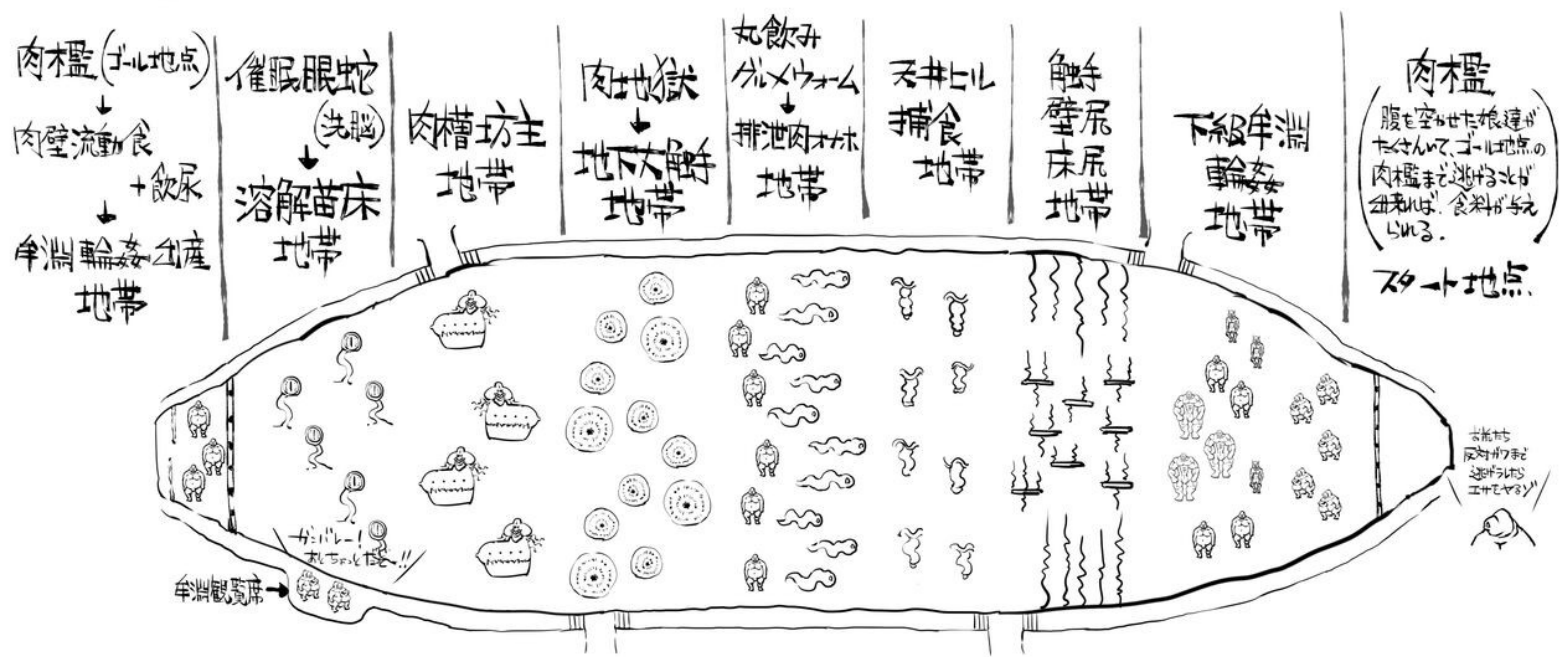 肉檻(ゴール地点)
↓
肉壁流動食
+飲尿
↓
牟淵輪姦出産
地帯
催眠眼蛇
(洗脳)
↓
溶解苗床
地帯
肉槽坊主
地帯
肉地獄
↓
地下大触手
地帯
丸飲み
グルメウォーム
↓
排泄肉オナホ
地帯
天井ヒル
捕食
地帯
触手
壁尻
床尻
地帯
下級牟淵
輪姦
地帯
肉檻
(腹を空かせた娘達が
たくさんいて、ゴール地点の
肉檻まで逃げることが
出来れば、食料が与え
られる。)
スタート地点
お前たち
反対がわまで
逃げうしたら
エサをヤるゾ
ガンバレー!
あとちょっとだぞ〜!!
牟淵観覧席→